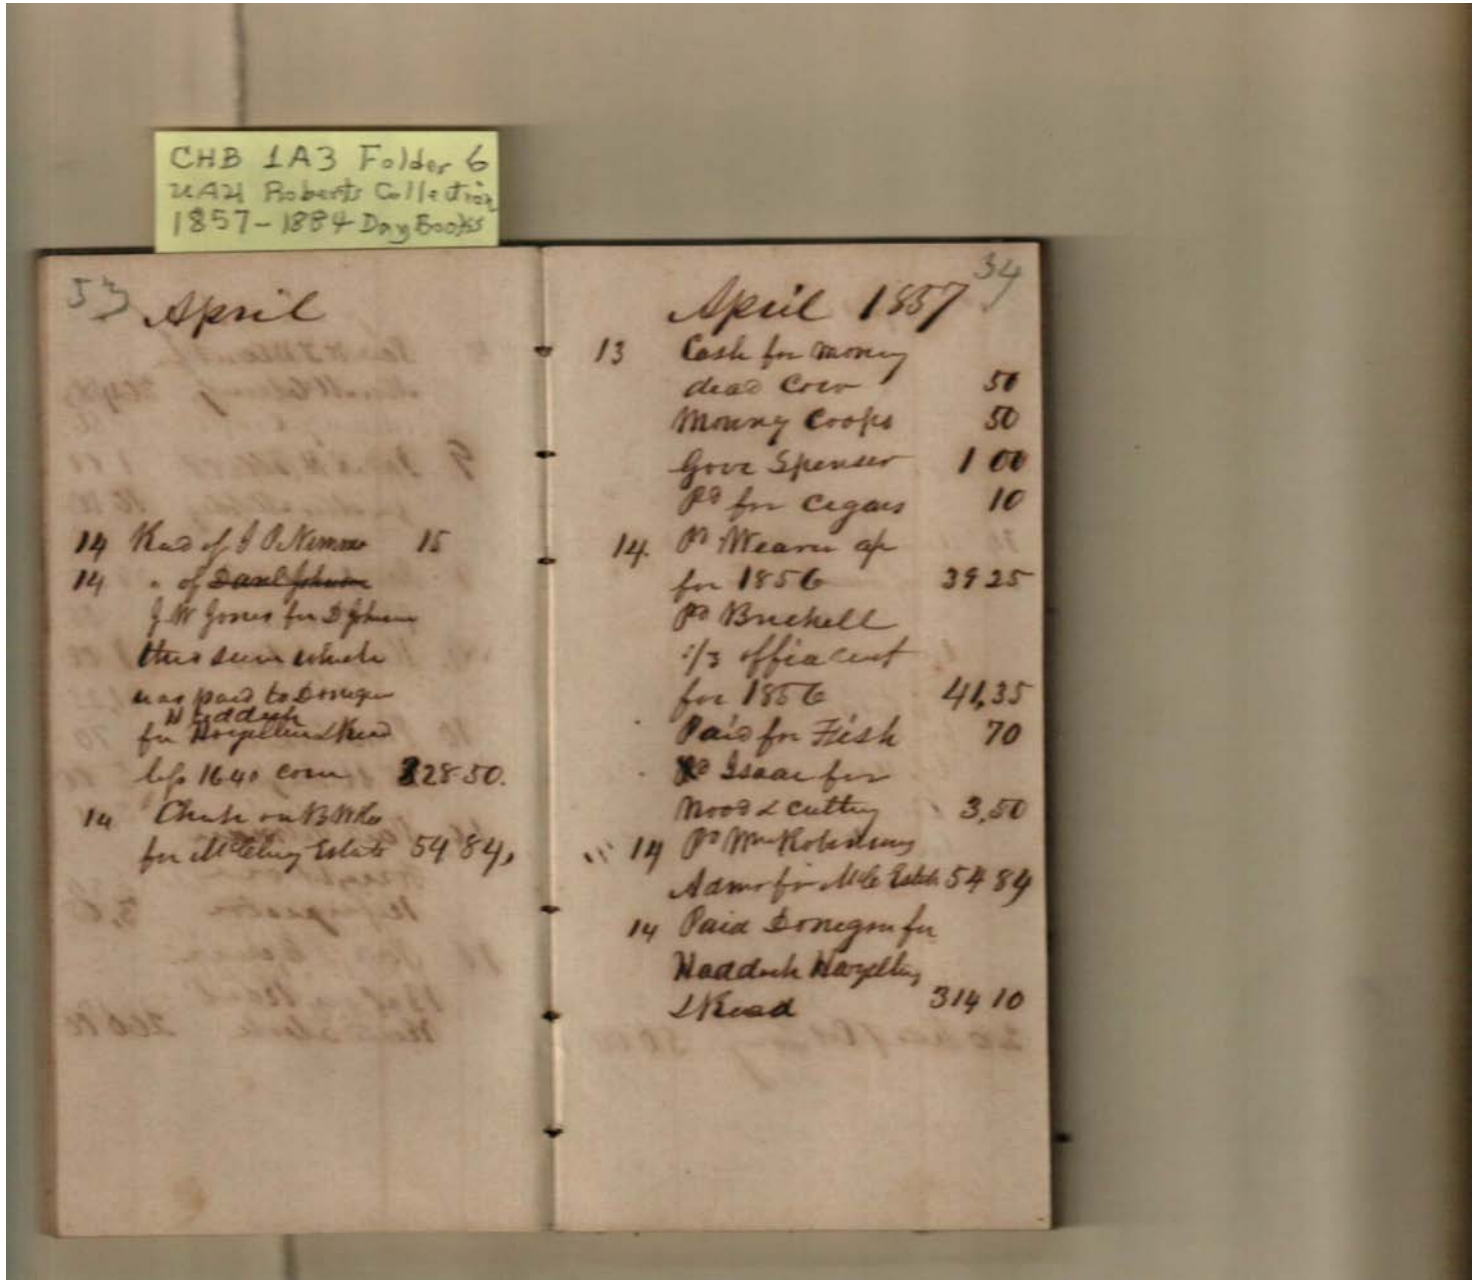 CHB 1A3 Folder 6
UAH Roberts Collection
1857-1884 Day Books
53
April
14 Recd of J P Nimmo 15
14 " of Danl Johnson
J W Jones for D Johnson
this sum which
was paid to Donegan
Haddock
for & Read
less 16 40 corn 328.50.
14 Check on
for Estate 54 84,
34
April 1857
13 Cash for
dead Cow 50
Coops 50
Gove Spenser 1 00
Pd for Cigars 10
14. Pd a/c
for 1856 39 25
Pd Brickell
1/3 office rent
for 1856 41,35
Paid for Fish 70
Pd Isaac for
Wood & cutting 3,50
14 Pd Wm Robinson
Admr for McC Estate 54 84
14 Paid Donegan for
Haddock
& Read 314 10